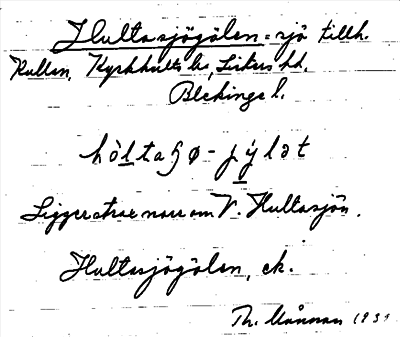 Hultasjögölen = sjö tillh.
Kullen, Kyrkhults sn, Listers hd.
Blekinge l.
hòltaɧø-jỳlət
Ligger strax norr om V. Hultasjön.
Hultasjögölen, ek.
Th. 193